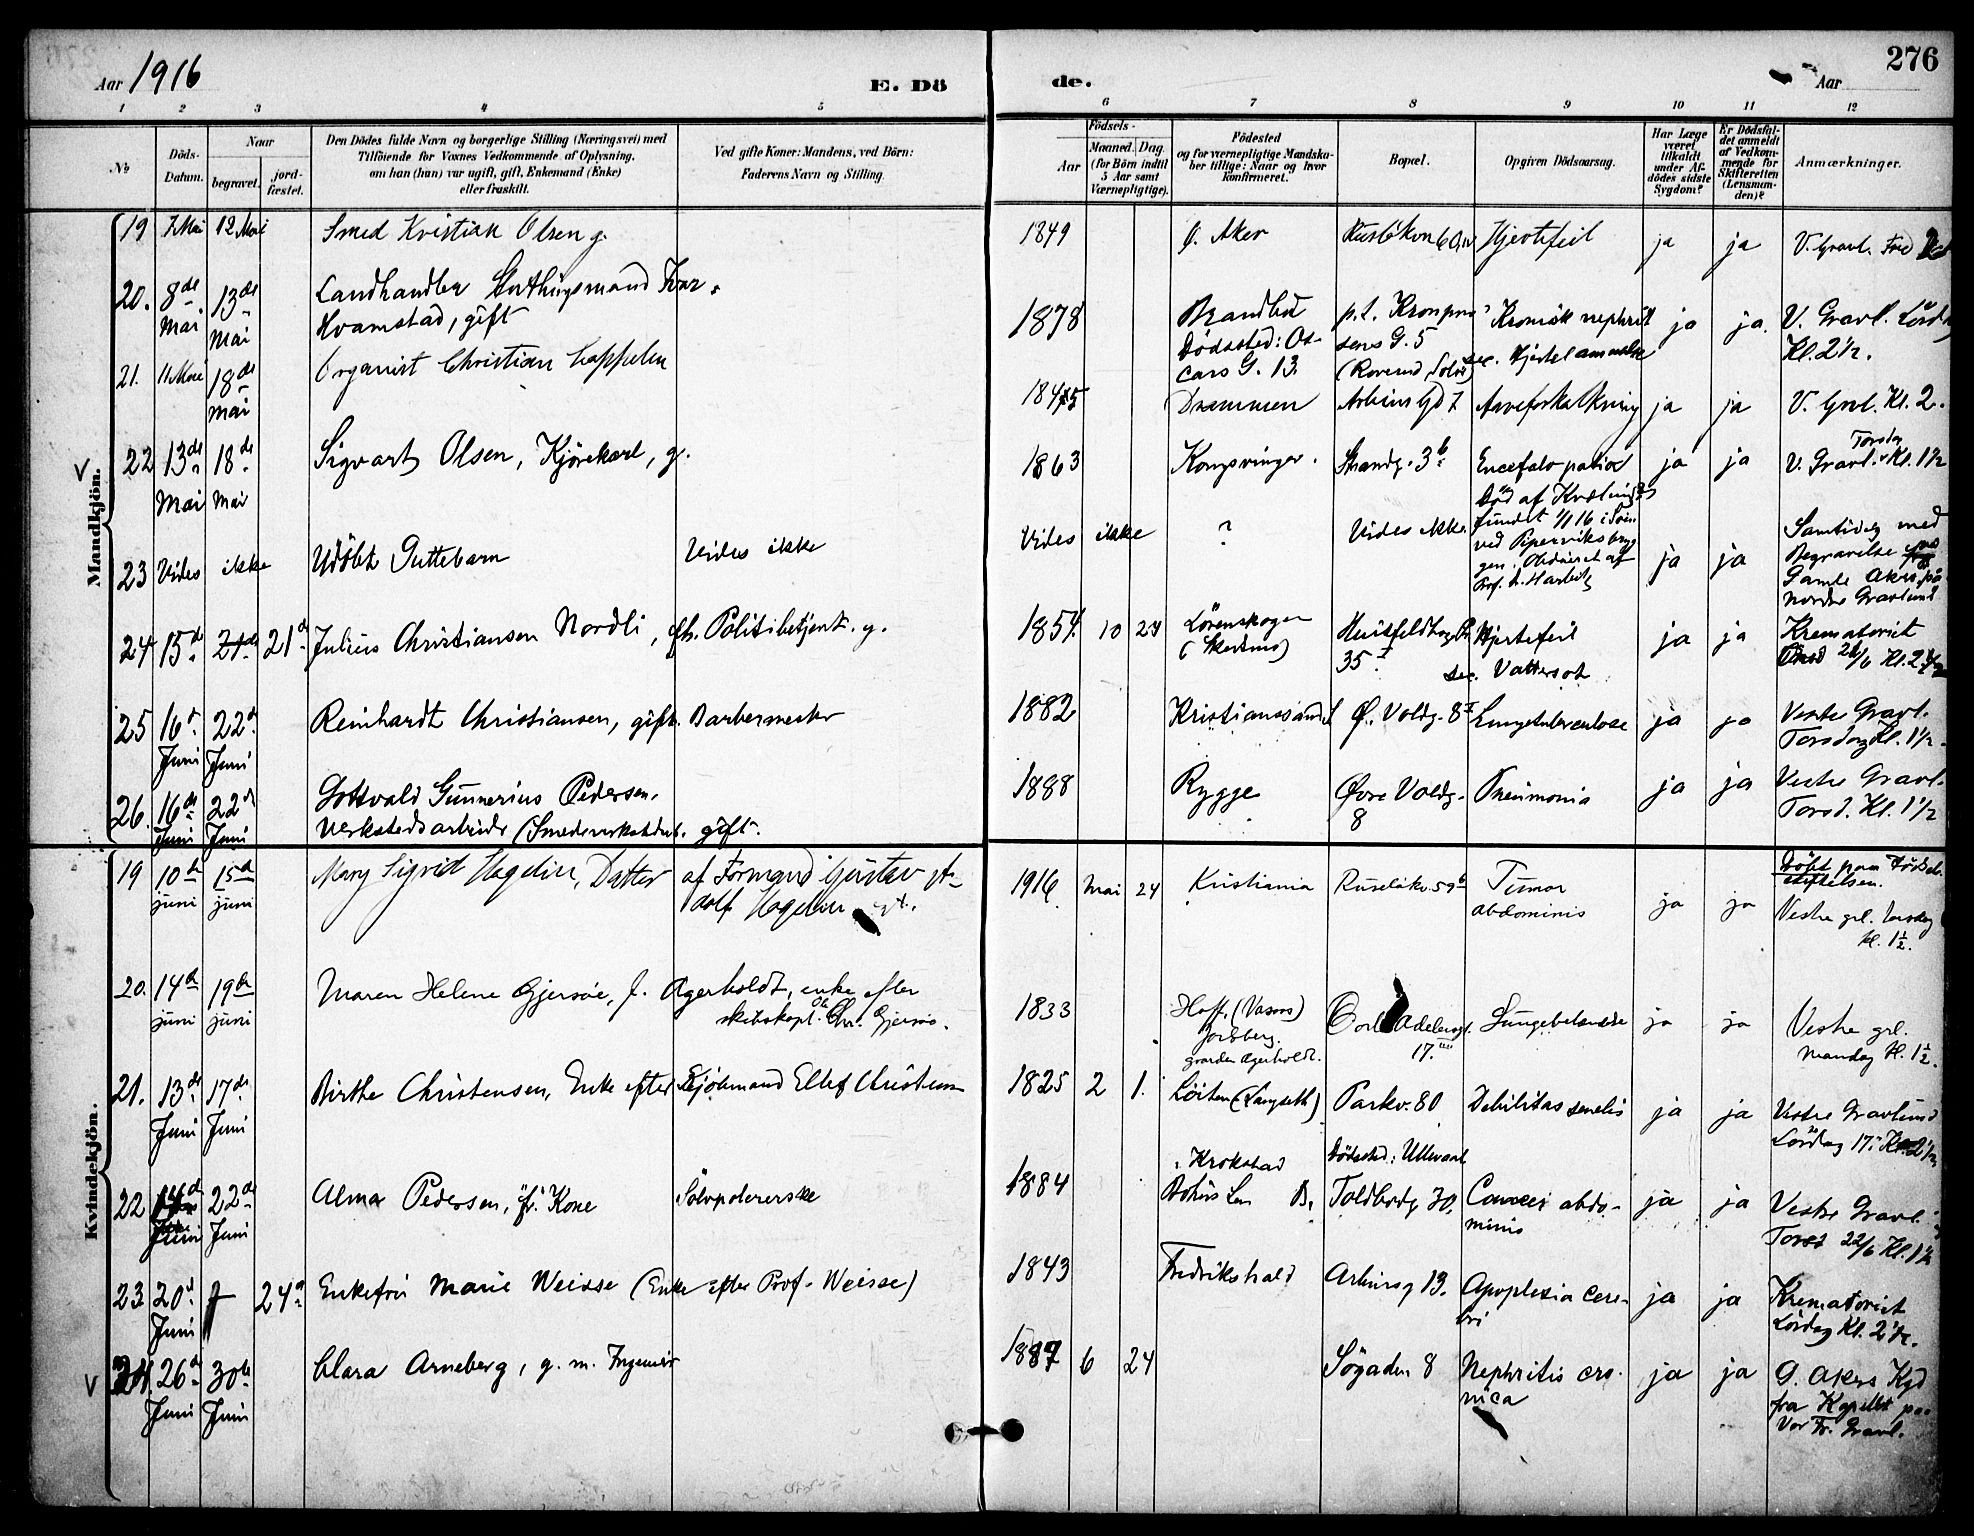 276
Aar 1916
E. Dö
de.
Aar
1 2 3 4 5 6 7 8 9 10 11 12
№
Döds-Datum.
Naar
begravet.
jord-fæstet.
Den Dödes fulde Navn og borgerlige Stilling (Næringsvei) med
Tilföiende for Voxnes Vedkommende af Oplysning,
om han (hun) var ugift, gift, Enkemand (Enke)
eller fraskilt.
Ved gifte Koner: Mandens, ved Börn:
Faderens Navn og Stilling.
Födsels-
Aar
Maaned. Dag.
(for Börn indtil
5 Aar samt
Værnepligtige).
Födested
og for værnepligtige Mandska-
ber tillige: Naar og hvor
konfirmeret.
Bopæl.
Opgiven Dödsaarsag.
Har Læge
været
tilkaldt
under Af-
dödes sidste
Sygdom?
Er Dödsfal-
det anmeldt
af Vedkom-
mende for
Skifteretten
(Lensman-
den)?
Anmærkninger.
Mandkjön.
19 7 Mai 12 Mai Smed Kristian Olsen g. 1849 Ø. Aker Hjertefeil ja ja V. Gravl.
20. 8de Mai 13de Mai Landhandler Storthingsmand
Hvamstad, gift 1878 Brandbu
Dødssted: Os-
cars G. 13. p.t. Kronprin
sens G. 5 Kronisk nephrit ja ja. V. Gravl. Lørd
Kl. 2½.
21. 11 Mai 18de Mai Organist Christian Cappelen 1845 Drammen Arbins Gd 7 Aareforkalkning ja ja V. Grvl. Kl. 2.
22 13de Mai 18de Mai Sigvart Olsen, Kjørekarl, g. 1863 Kongsvinger. Strandg. 3b Encefalopatia ja ja V. Gravl. Torsdag Kl. 1½
23 Vides ikke Udøbt Guttebarn Vides ikke Vides ikke ? Vides ikke. Død af Kvælning
fundet 1/1 16 i Søen
ved Piperviksbryg
gen. Obduceret af
Prof. Harbitz ja ja Samtidig med
Begravelse fra
Gamle Akers på
Nordre Gravlund
24 15de 21de 21de Julius Christiansen Nordli, fh. Politibetjent. g. 1854. 10 24 Lørenskogen
Huitfeldtsg
35 Hjertefeil
sec. Vattersot ja ja Krematoriet
21/6 Kl. 2½
25 16d Juni 22d Juni Reinhardt Christiansen, gift. Barbermester 1882 Kristianssand Ø. Voldg. 8 Lungetuberculose ja ja Vestre Gravl.
Torsdag Kl. 1½
26. 16de Juni 22d Juni Gottvald Gunnerius Pedersen,
Verkstedsarbeider (Smedeverkstedarb. gift. 1888 Rygge Øvre Voldg.
8 Pneumonia ja ja Vestre Gravl.
Torsd. Kl. 1½
Kvindekjön.
19 10de juni 15de juni Mary Sigrid Hagelin, Datter af Formand Gustav A-
dolf Hagelin 1916 Mai 24 Kristiania Ruseløkv. 59b Tumor
abdominis ja ja Døbt paa Fødsels
stiftelsen.
Vestre grl. torsdag
kl. 1½.
20. 14de juni 19de juni Maren Helene Gjersøe, f. Agerholdt, enke efter
skibskapt. Chr. Gjersøe. 1833 Hoff, (Vaaers)
Jarlsberg.
gaarden Agerholdt. Cort Adelersg.
17. Lungebetændelse ja ja Vestre grl.
mandag kl. 1½.
21. 13de Juni 17de Juni Birthe Christensen, Enke efter Sjømand Ellef Christensen 1825 2 1. Løiten (Langseth) Parkv. 80 Debilitas senilis ja ja Vestre Gravlund
Lørdag 17. Kl. 2½
22 14d Juni 22de Juni Alma Pedersen, fr. Kone Sølvpolererske 1884 Krokstad
Bohus Len Dødssted: Ullevaal
Toldbodg 30. Cancer abdo-
minis ja ja Vestre Gravl.
Torsd 22/6 Kl. 1½
23 20d Juni 24d Enkefru Marie Weisse (Enke efter Prof. Weisse) 1843 Fredrikshald Arbinsg 13. Apoplexia cere-
bri ja ja Krematoriet
Lørdag Kl. 2½.
24. 26d Juni 30te Juni Clara Arneberg, g. m. Ingeniør 1887 6 24 Søgaden 8 Nephritis cro-
nica ja ja G. Akers Kgd
fra Kapellet paa
Vor Fr. Gravl.